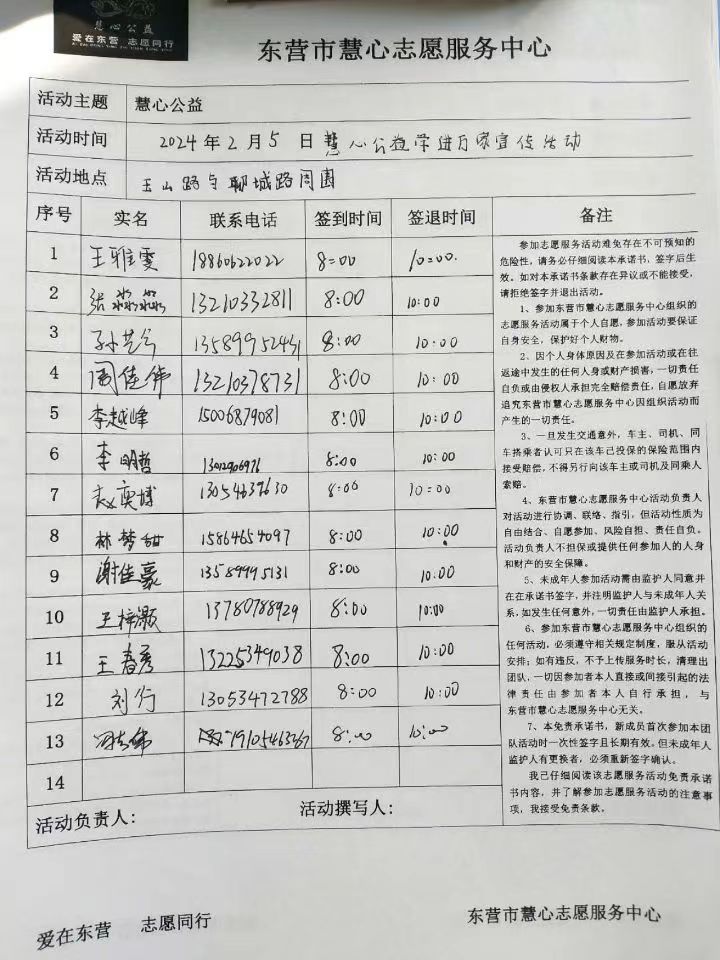 慧心公益
爱在东营 志愿同行
东营市慧心志愿服务中心
活动主题 慧心公益
活动时间 2024年2月5日慧心公益学进万家宣传活动
活动地点 玉山路与聊城路周围
序号 实名 联系电话 签到时间 签退时间 备注
1 王雅雯 18860622022 8:00 10:00.
2 张淼淼 13210332811 8:00 10:00
3 孙艺 13589952431 8:00 10:00
4 周佳伟 13210378731 8:00 10:00
5 李越峰 15006879081 8:00 10:00
6 李明哲 13012906976 8:00 10:00
7 赵奕博 13054639630 8:00 10:00
8 林梦甜 15864654097 8:00 10:00
9 谢佳豪 13589995131 8:00 10:00
10 王梓灏 13780788929 8:00 10:00
11 王春秀 13225349038 8:00 10:00
12 刘行 13053472788 8:00 10:00
13 8:00 10:00
14
参加志愿服务活动难免存在不可预知的
危险性，请务必仔细阅读本承诺书，签字后生
效。如对本承诺书条款存在异议或不能接受，
请拒绝签字并退出活动。
1、参加东营市慧心志愿服务中心组织的
志愿服务活动属于个人自愿，参加活动要保证
自身安全，保护好个人财物。
2、因个人身体原因及在参加活动或在往
返途中发生的任何人身或财产损害，一切责任
自负或由侵权人承担完全赔偿责任，自愿放弃
追究东营市慧心志愿服务中心因组织活动而
产生的一切责任。
3、一旦发生交通意外，车主、司机、同
车搭乘者认可只在该车已投保的保险范围内
接受赔偿，不得另行向该车主或司机及同乘人
索赔。
4、东营市慧心志愿服务中心活动负责人
对活动进行协调、联络、指引，但活动性质为
自由结合、自愿参加、风险自担、责任自负。
活动负责人不担保或提供任何参加人的人身
和财产的安全保障。
5、未成年人参加活动需由监护人同意并
在在承诺书签字，并注明监护人与未成年人关
系，如发生任何意外，一切责任由监护人承担。
6、参加东营市慧心志愿服务中心组织的
任何活动，必须遵守相关规定制度，服从活动
安排；如有违反，不予上传服务时长，清理出
团队，一切因参加者本人直接或间接引起的法
律责任由参加者本人自行承担，与
东营市慧心志愿服务中心无关。
7、本免责承诺书，新成员首次参加本团
队活动时一次性签字且长期有效。但未成年人
监护人有更换者，必须重新签字确认。
我已仔细阅读该志愿服务活动免责承诺
书内容，并了解参加志愿服务活动的注意事
项，我接受免责条款。
活动负责人： 活动撰写人：
爱在东营 志愿同行 东营市慧心志愿服务中心